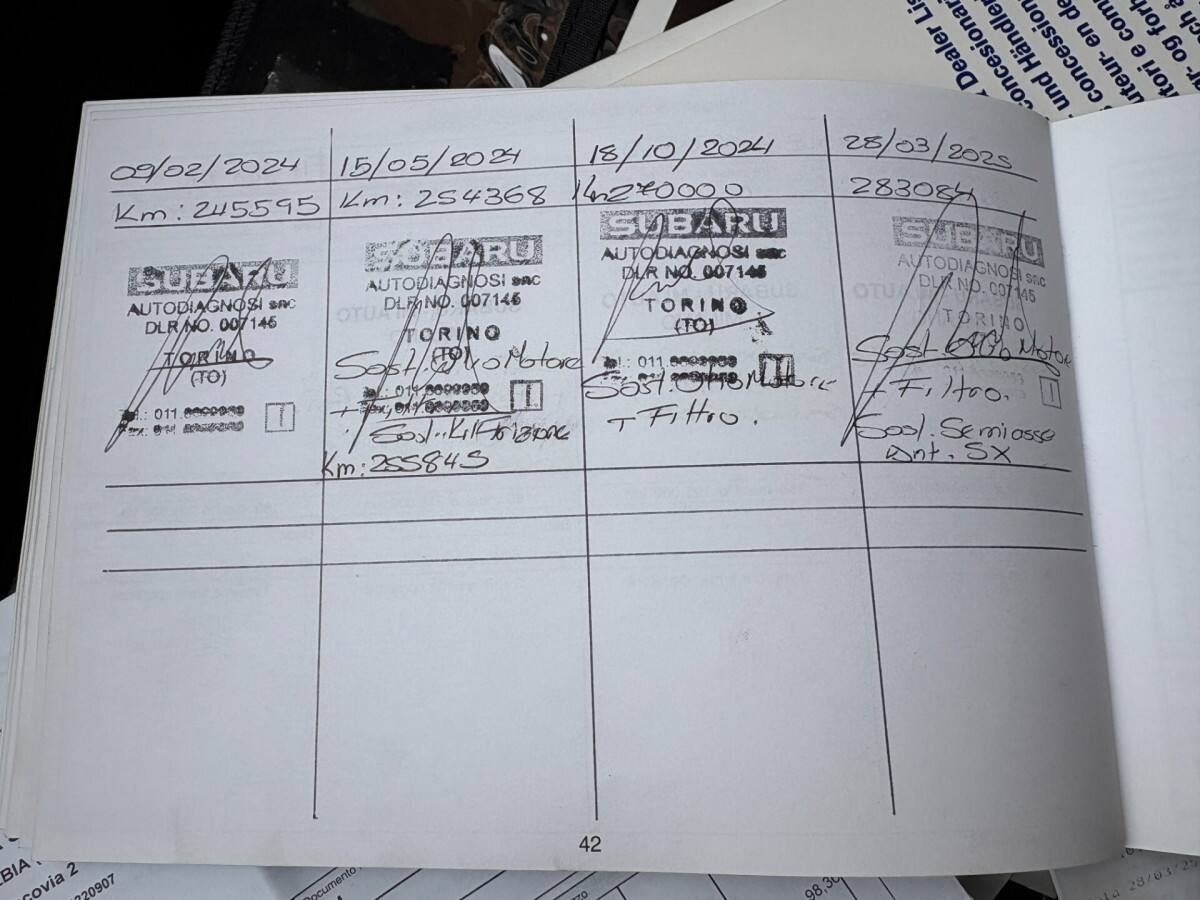 09/02/2024
Km: 245595
SUBARU
AUTODIAGNOSI snc
DLR NO. 007145
TORINO
(TO)
Tel.: 011
15/05/2024
Km: 254368
SUBARU
AUTODIAGNOSI snc
DLR NO. 007145
TORINO
(TO)
Sost. Olio Motore
011
Sost. Kit Frizione
Km: 255845
18/10/2024
Km 270000
SUBARU
AUTODIAGNOSI snc
DLR NO. 007145
TORINO
(TO)
011
Sost. Olio Motore
+ Filtro.
28/03/2025
283084
SUBARU
AUTODIAGNOSI snc
DLR NO. 007145
TORINO
Sost. Olio Motore
+ Filtro.
Sost. Semiasse
Ant. SX
42
Dealer Lis
concessionar
und Händler
concession
covia 2
220907
Documento
98,30
28/03/2